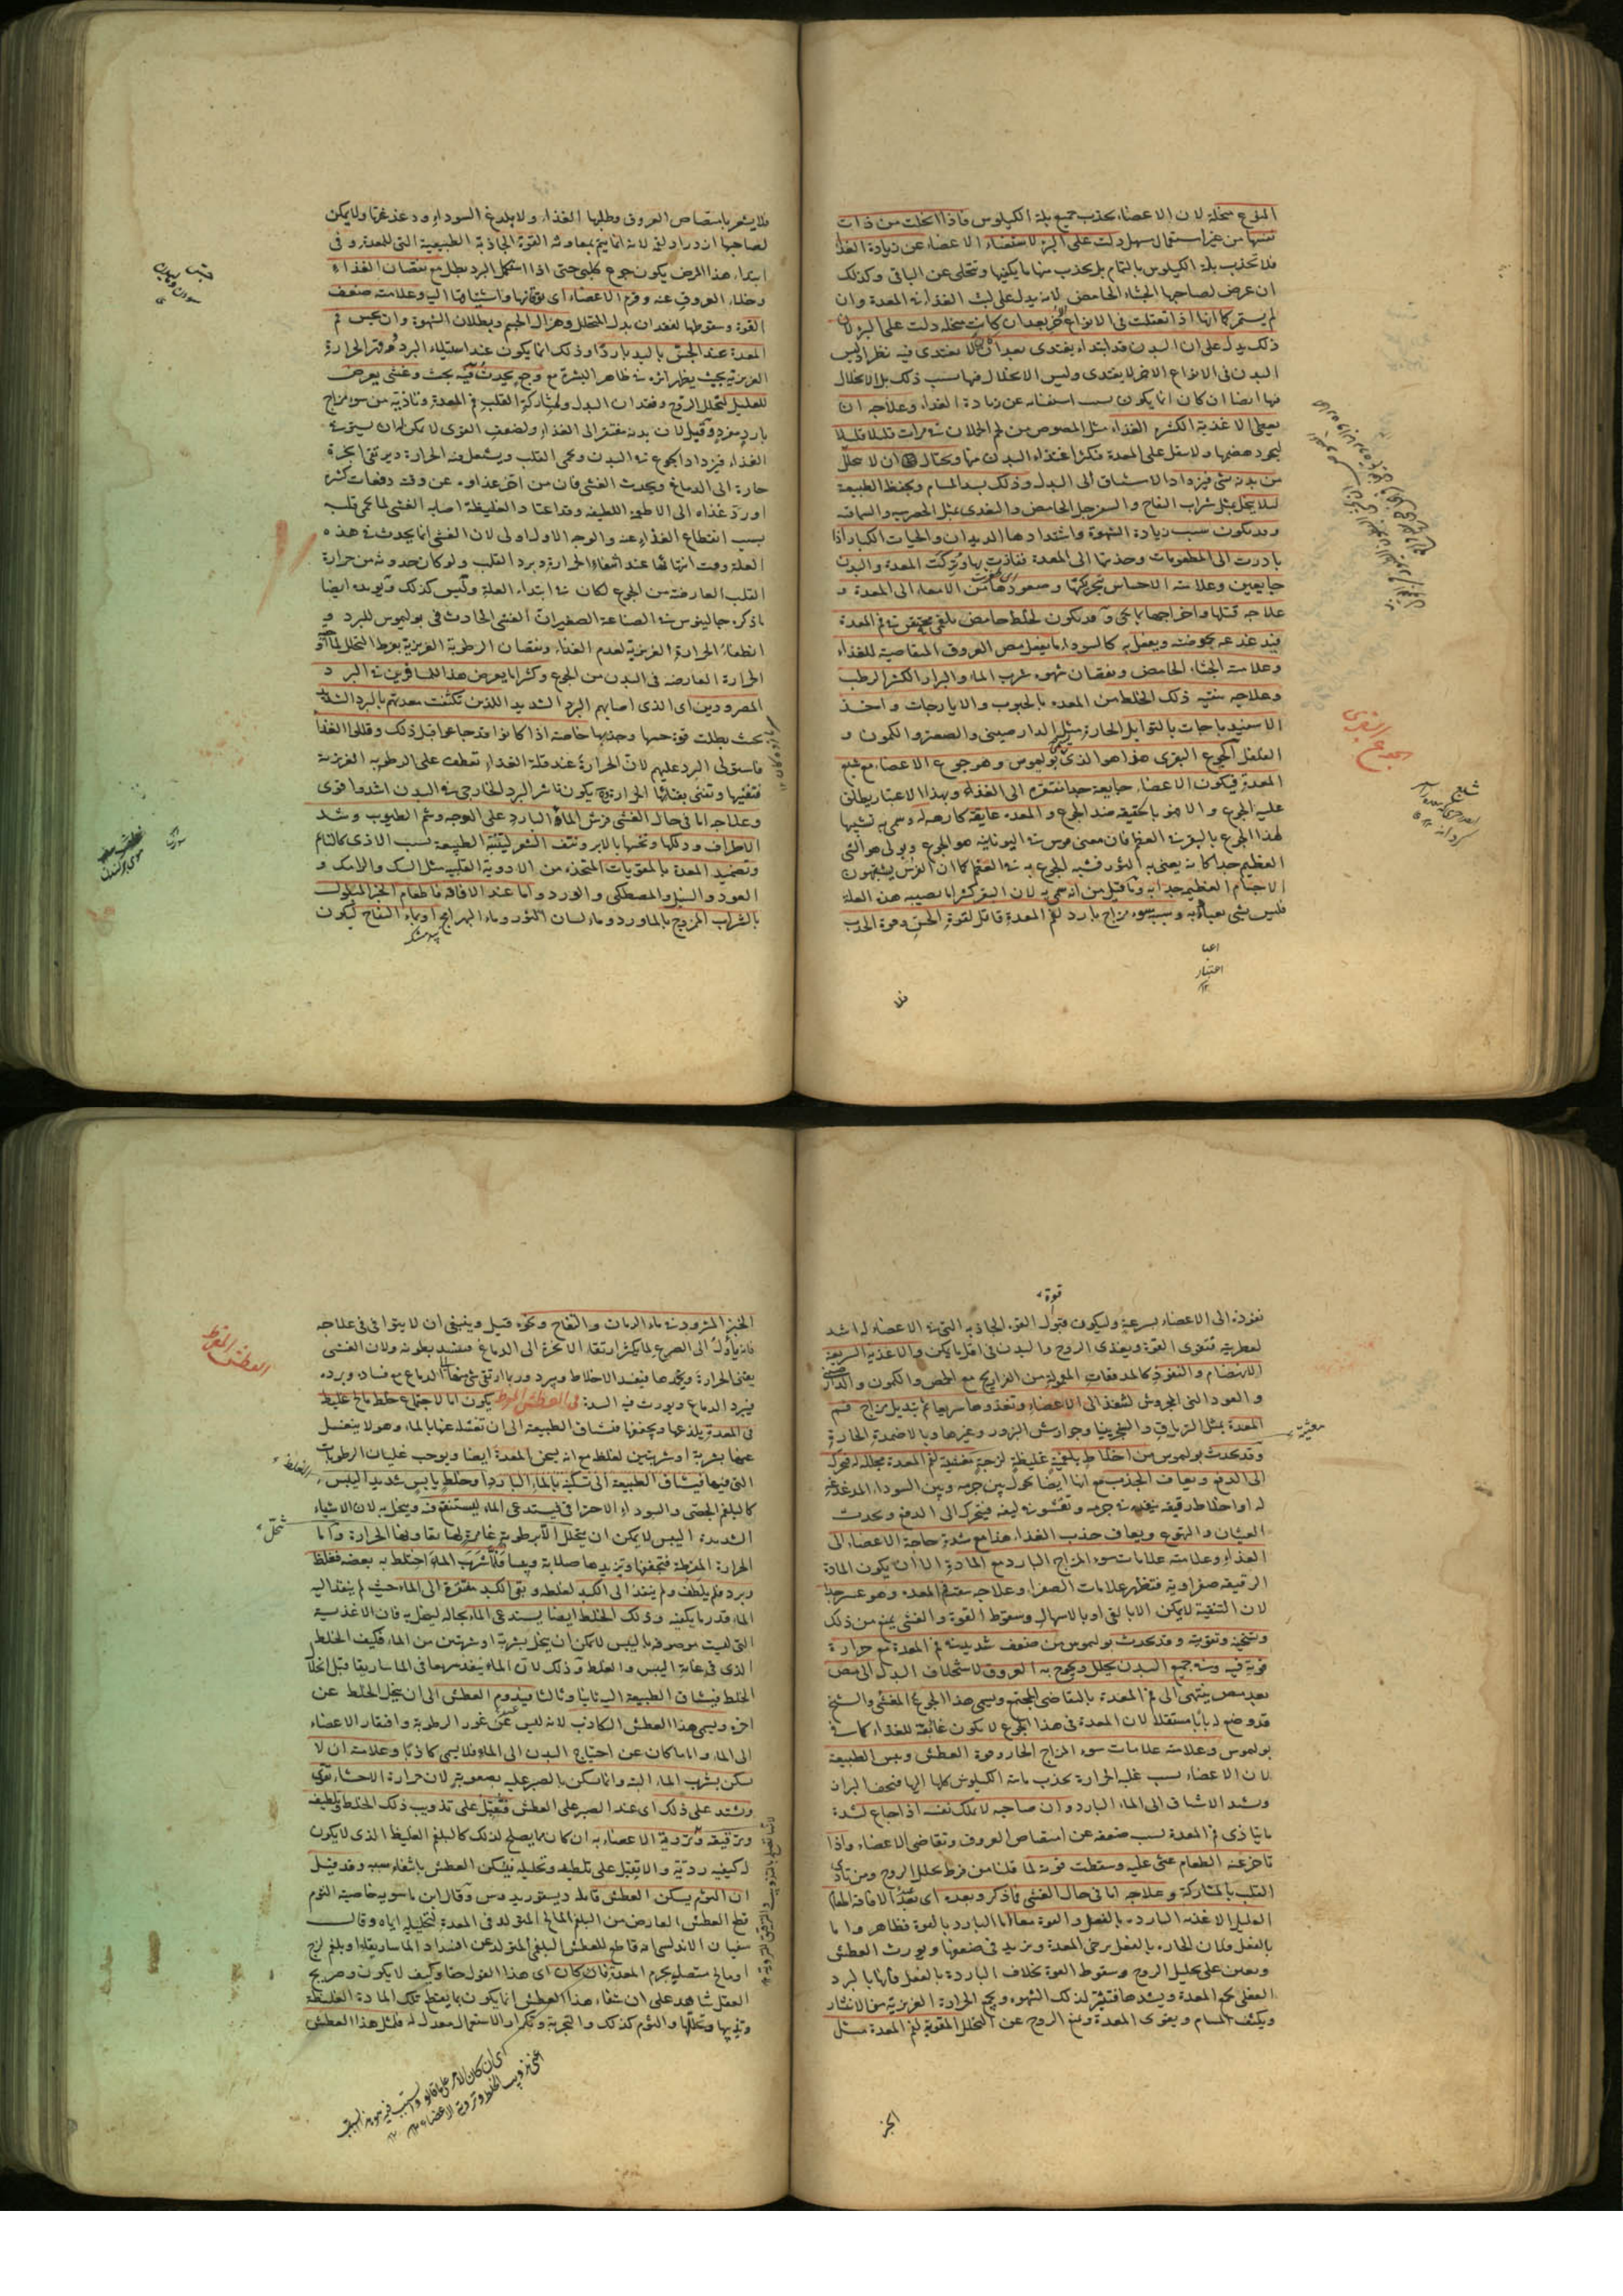 النوع منحلة لان الاعضاء تجذب جميع بلة الكيلوس فاذا انحلت من ذات
نفسها من غير استعمال مسهل دلت على البرء لاستغناء الاعضاء عن زيادة الغذاء
فلا تجذب بلة الكيلوس بالتمام بل تجذب منها ما يكفيها وتتخلى عن الباقى وكذلك
ان عرض لصاحبها الجشاء الحامض لانه يدل على لبث الغذاء فى المعدة وان
لم يستمر كما انها اذا تعقلت فى الانواع الاخر بعد ان كانت منحلة دلت على البرء لان
ذلك يدل على ان البدن قد ابتداء يغتدى بعد ان كان لا يغتدى فيه نظر اذ ليس
البدن فى الانواع الاخر لا يغتدى وليس الانحلال فيها سبب ذلك بل الانحلال
فيها ايضا ان كان انما يكون بسبب استغنائه عن زيادة الغذاء وعلاجه ان
يعطى الاغذية الكثيرة الغذاء مثل المصوص من لحم الحملان فى مرات قليلا قليلا
ليجود هضمها ولا يثقل على المعدة فيكثر اغتذاء البدن منها ويحتال ان لا يتحلل
من بدنه شى فيزداد الاشتياق الى البدل وذلك بسد المسام ويحفظ الطبيعة
لئلا ينحل بمثل شراب التفاح والسفرجل الحامض والتغدى بمثل الحصرمية والسماقية
وقد يكون سبب زيادة الشهوة واشتدادها الديدان والحيات الكبار اذا
بادرت الى المطعومات وجذبها الى المعدة ففازت بها وتركت المعدة والبدن
جايعين وعلامته الاحساس بتحركها وصعودها من الامعاء الى المعدة و
علاجه قتلها واخراجها بما يجى وقد يكون لخلط حامض بلغمى محتقن فى فم المعدة
فيدغدغه بحموضته ويفعل به كالسوداء ما يفعل مص العروق المتقاضية للغذاء
وعلامته الجشاء الحامض ونقصان شهوة شرب الماء والبراز الكثير الرطب
وعلاجه تنقية ذلك الخلط من المعدة بالحبوب والايارجات واخذ
الاسفيدباجات بالتوابل الحارة مثل الدارصينى والصعتر والكمون و
الفلفل الجوع البقرى هذا هو الذى يسمى بوليموس وهو جوع الاعضاء مع شبع
المعدة فيكون الاعضاء جايعة جدا مفتقرة الى الغذاء وبهذا الاعتبار يطلق
عليه الجوع والا فهو بالحقيقة ضد الجوع والمعدة عايفة كارهة له وسمى به تشبيها
لهذا الجوع بالبقر فى العظم فان معنى موس فى اليونانية هو الجوع وبولى هو الشى
العظيم جدا كانه يعنى به الثور فشبه الجوع به فى العظم كما ان الفرس يشبهون
الاجسام العظيمة جدا به وما قيل من انه سمى به لان البقر كثيرا ما يصيبه هذه العلة
فليس بشى يعبأ به وسببه سوء مزاج بارد لفم المعدة قاتل لقوة الحس وقوة الجذب
الجوع البقرى
اعبا
اعتبار
فلا
فلا يشعر بامتصاص العروق وطلبها الغذاء ولا بلدغ السوداء ودغدغتها ولا يمكن
لصاحبها ازدراد لقمة لانه انما يتم بمعاونة القوة الجاذبة الطبيعية التى للمعدة وفى
ابتداء هذا المرض يكون جوع كلبى حتى اذا استكمل البرد بطل مع نقصان الغذاء
وخلاء العروق عنه وقرم الاعضاء اى توقانها واشتياقها اليه وعلامته ضعف
القوة وسقوطها لفقدان بدل المتحلل وهزال الجسم وبطلان الشهوة وان يحس فم
المعدة عند الجس باليد باردا وذلك انما يكون عند استيلاء البرد وقهر الحرارة
الغريزية بحيث يظهر اثره فى ظاهر البشرة مع وجع يحدث فيه بحث وغشى يعرض
للعليل لتحلل الروح وفقدان البدل ولمشاركة القلب فم المعدة وتاذيه من سوء مزاج
بارد مفرد وقيل لان بدنه مفتقر الى الغذاء ولضعف القوى لا يمكن له ان يستمرئ
الغذاء فيزداد الجوع فى البدن ويحمى القلب ويشعل منه الحرارة ويرتقى ابخرة
حارة الى الدماغ ويحدث الغشى فان من اخر غذاوه عن وقته دفعات كثيرة
او رد غذاه الى الاطعمة اللطيفة وقد اعتاد الغليظة اصابه الغشى لما يحمى قلبه
بسبب انقطاع الغذاء عنه والوجه الاول اولى لان الغشى انما يحدث فى هذه
العلة وقت انتهائها عند انطفاء الحرارة وبرد القلب ولو كان حدوثه من حرارة
القلب العارضة من الجوع لكان فى ابتداء العلة وليس كذلك ويويده ايضا
ما ذكره جالينوس فى الصناعة الصغيرة ان الغشى الحادث فى بوليموس للبرد و
انطفاء الحرارة الغريزية لعدم الغذاء ونقصان الرطوبة الغريزية بفرط التحلل لما اقوى
الحرارة العارضة فى البدن من الجوع وكثيرا ما يعرض هذا للمسافرين فى البرد
المصرودين اى الذى اصابهم البرد الشديد اللذين تكثفت معدتهم بالبرد الشديد
بحيث بطلت قوة حسها وجذبها خاصة اذا كانوا قد جاعوا قبل ذلك وقللوا الغذا
فاستولى البرد عليهم لان الحرارة عند قلة الغذاء تعطف على الرطوبة الغريزية
فتفنيها وتفنى بفنائها الحرارة فيكون تاثير البرد الخارجى فى البدن اشد واقوى
وعلاجه اما فى حال الغشى فرش الماء البارد على الوجه وشم الطيوب وشد
الاطراف ودلكها ونخسها بالابر ونتف الشعر لينتبه الطبيعة بسبب الاذى كالنائم
وتضميد المعدة بالمقويات المتخذة من الادوية القلبية مثل السك والرامك و
العود والسنبل والمصطكى والورد واما عند الافاقة فاطعام الخبز المبلول
بالشراب الممزوج بالماورد وماء لسان الثور وماء البهرامج او بماء التفاح ليكون
بيدمشك
قوة
نفوذه الى الاعضاء بسرعة وليكون قبول القوة الجاذبة التى فى الاعضاء له اشد
لعطريته فتقوى القوة ويغذى الروح والبدن فى اقل ما يمكن والاغذية السريعة
الانهضام والنفوذ كالمدققات المعمولة من الفراريج مع الحمص والكمون والدارصينى
والعود النى المجروش لتنفذ الى الاعضاء وتغذوها سريعا ثم تبديل مزاج فم
المعدة بمثل الترياق والسجزينيا وجوارش البزور وغيرها وبالاضمدة الحارة
وقد يحدث بوليموس من اخلاط بلغمية غليظة لزجة مغشية لفم المعدة مجللة له فيحرك
الى الدفع ويعاف الجذب مع انها ايضا تحول بين جرمه وبين السوداء المدغدغة
له او اخلاط رقيقة منغمسة فى جرمه وتفشو فى ليفه فيتحرك الى الدفع ويحدث
الغثيان والتهوع ويعاف جذب الغذاء هذا مع شدة حاجة الاعضاء الى
الغذاء وعلامته علامات سوء المزاج البارد مع المادة الا ان يكون المادة
الرقيقة صفراوية فتظهر علامات الصفراء وعلاجه تنقية فم المعدة وهو عسر جدا
لان التنقية لا يمكن الا بالقى او بالاسهال وسقوط القوة والغشى يمنع من ذلك
وتسخينه وتقويته وقد يحدث بوليموس من ضعف شديد فى فم المعدة مع حرارة
قوية فيه وفى جميع البدن يحلل ويحوج به العروق لاستخلاف البدل الى مص
بعد مص ينتهى الى فم المعدة بالتقاضى المجتمع ويسمى هذا الجوع المغشى والشيخ
قد وضع له بابا مستقلا لان المعدة فى هذا الجوع لا يكون عائفة للغذاء كما فى
بوليموس وعلامته علامات سوء المزاج الحار وقوة العطش ويبس الطبيعة
لان الاعضاء بسبب غلبة الحرارة تجذب مائية الكيلوس كلها اليها فيجف البراز
وشدة الاشتياق الى الماء البارد وان صاحبه لا يملك نفسه اذا جاع لشدة
ما يتاذى فم المعدة بسبب ضعفه عن امتصاص العروق وتقاضى الاعضاء واذا
تاخر عنه الطعام غشى عليه وسقطت قوته لما قلنا من فرط تحلل الروح ومن تاذى
القلب بالمشاركة وعلاجه اما فى حال الغشى فما ذكر وبعده اى بعد الافاقة اطعام
العليل الاغذية الباردة بالفعل والقوة معا اما البارد بالقوة فظاهر واما
بالفعل فلان الحارة بالفعل يرخى المعدة ويزيد فى ضعفها ويورث العطش
ويعين على تحليل الروح وسقوط القوة بخلاف الباردة بالفعل فانها بالبرد
الفعلى يجمع المعدة ويشدها فتثير لذلك الشهوة ويجمع الحرارة الغريزية من الانتشار
ويكثف المسام ويقوى المعدة ويمنع الروح عن التحلل المقوية لفم المعدة مثل
الخبز
الخبز المثرود فى ماء الرمان والتفاح ونحوه قيل وينبغى ان لا يتوانى فى علاجه
فانه يأول الى الصرع لما يكثر ارتقاء الابخرة الى الدماغ فينسد بطونه ولان الغشى
يفنى الحرارة ويخمدها فيفسد الاخلاط ويبرد وربما ارتقى شى منها الى الدماغ مع فساده وبرده
فيبرد الدماغ ويورث فيه السدد فى العطش المفرط يكون اما لاجتماع خلط مالح غليظ
فى المعدة يلذعها ويجففها فتشتاق الطبيعة الى ان تغسله عنها بالماء وهو لا ينغسل
عنها بشربة او شربتين لغلظه مع انه يسخن المعدة ايضا ويوجب غليان الرطوبات
التى فيها فيشتاق الطبيعة الى تسكينه بالماء البارد او خلط يابس شديد اليبس
كالبلغم الجصى والسوداء الاحتراقى فيستدعى الماء ليستنقع فيه وينحل به لان الاشياء
الشديدة اليبس لا يمكن ان يتحلل الا برطوبة غامرة لها نقاوها الحرارة واما
الحرارة المفرطة فتجففها وتزيدها صلابة ويبسا فكلما شرب الماء اختلط به بعضه فغلظ
وبرد فلم يلطف ولم ينفذ الى الكبد لغلظه وبقى الكبد مفتقرة الى الماء حيث لم ينفذ اليه
الماء قدر ما يكفيه وذلك الخلط ايضا يستدعى الماء بحاله لينحل به فان الاغذية
التى ليست موصوفة باليبس لا يمكن ان ينحل بشربة او شربتين من الماء فكيف الخلط
الذى فى غاية اليبس والغلظ وذلك لان الماء ينفذ سريعا فى الماساريقا قبل انحلال
الخلط فيشتاق الطبيعة اليه ثانيا وثالثا فيدوم العطش الى ان ينحل الخلط عن
اخره ويسمى هذا العطش الكاذب لانه ليس عن عوز الرطوبة وافتقار الاعضاء
الى الماء واما ما كان عن احتياج البدن الى الماء فلا يسمى كاذبا وعلامته ان لا
يسكن بشرب الماء البتة وانما يسكن بالصبر عليه بصعوبة لان حرارة الاحشاء تقوى
وتشتد على ذلك اى عند الصبر على العطش فتقبل على تذويب ذلك الخلط وتلطيفه
وترقيقه وتروية الاعضاء به ان كان مما يصلح لذلك كالبلغم الغليظ الذى لا يكون
له كيفية ردية والا يقبل على تلطيفه وتحليله فيسكن العطش بانتفاء سببه وقد قيل
ان الثوم يسكن العطش قاله ديسقوريدوس وقال ابن ماسويه خاصية الثوم
قطع العطش العارض من البلغم المالح المتولد فى المعدة لتحليله اياه وقال
سفيان الاندلسى انه قاطع للعطش البلغمى المتولد عن انسداد الماساريقا او بلغم لزج
او مالح متصل بجرم المعدة فان كان اى هذا القول حقا وكيف لا يكون وصريح
العقل شاهد على ان شفاء هذا العطش انما يكون بما يقطع تلك المادة الغليظة
ويذيبها ويحللها والثوم كذلك والتجربة وتكرار الاستعمال معدل له فلمثل هذا العطش
العطش المفرط
اى ان كان الامر على ما قالوا
اعنى تذويب الخلط وتروية الاعضاء